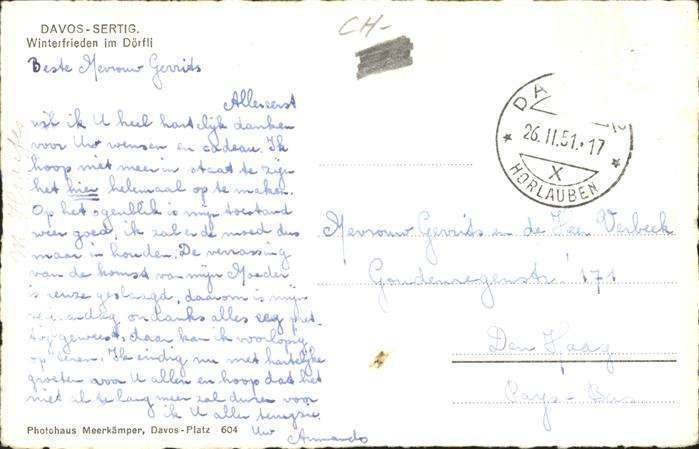 DAVOS-SERTIG.
Winterfrieden im Dörfli
CH-
Beste Mevrouw Gerrits
Allereerst
wil ik U heel hartelijk danken
voor Uw wensen en cadeau. Ik
hoop niet meer in staat te zijn
het hier helemaal op te maken.
Op het ogenblik is mijn toestand
weer goed, ik zal er de moed dus
maar in houden. De verrassing
van de komst van mijn Moeder
is reuze geslaagd, daarom is mijn
ondanks alles erg pret-
tig geweest, daar kan ik voorlopig
op teren. Ik eindig nu met hartelijke
groeten voor U allen en hoop dat het
niet al te lang meer zal duren voor
ik U allen terugzie
Uw
Armando
DA
26.II.51.-17
X
HORLAUBEN
Mevrouw Gerrits en de Heer Verbeek
Goudenregenstr. 171
Den Haag
Pays-Bas
Photohaus Meerkämper, Davos-Platz 604